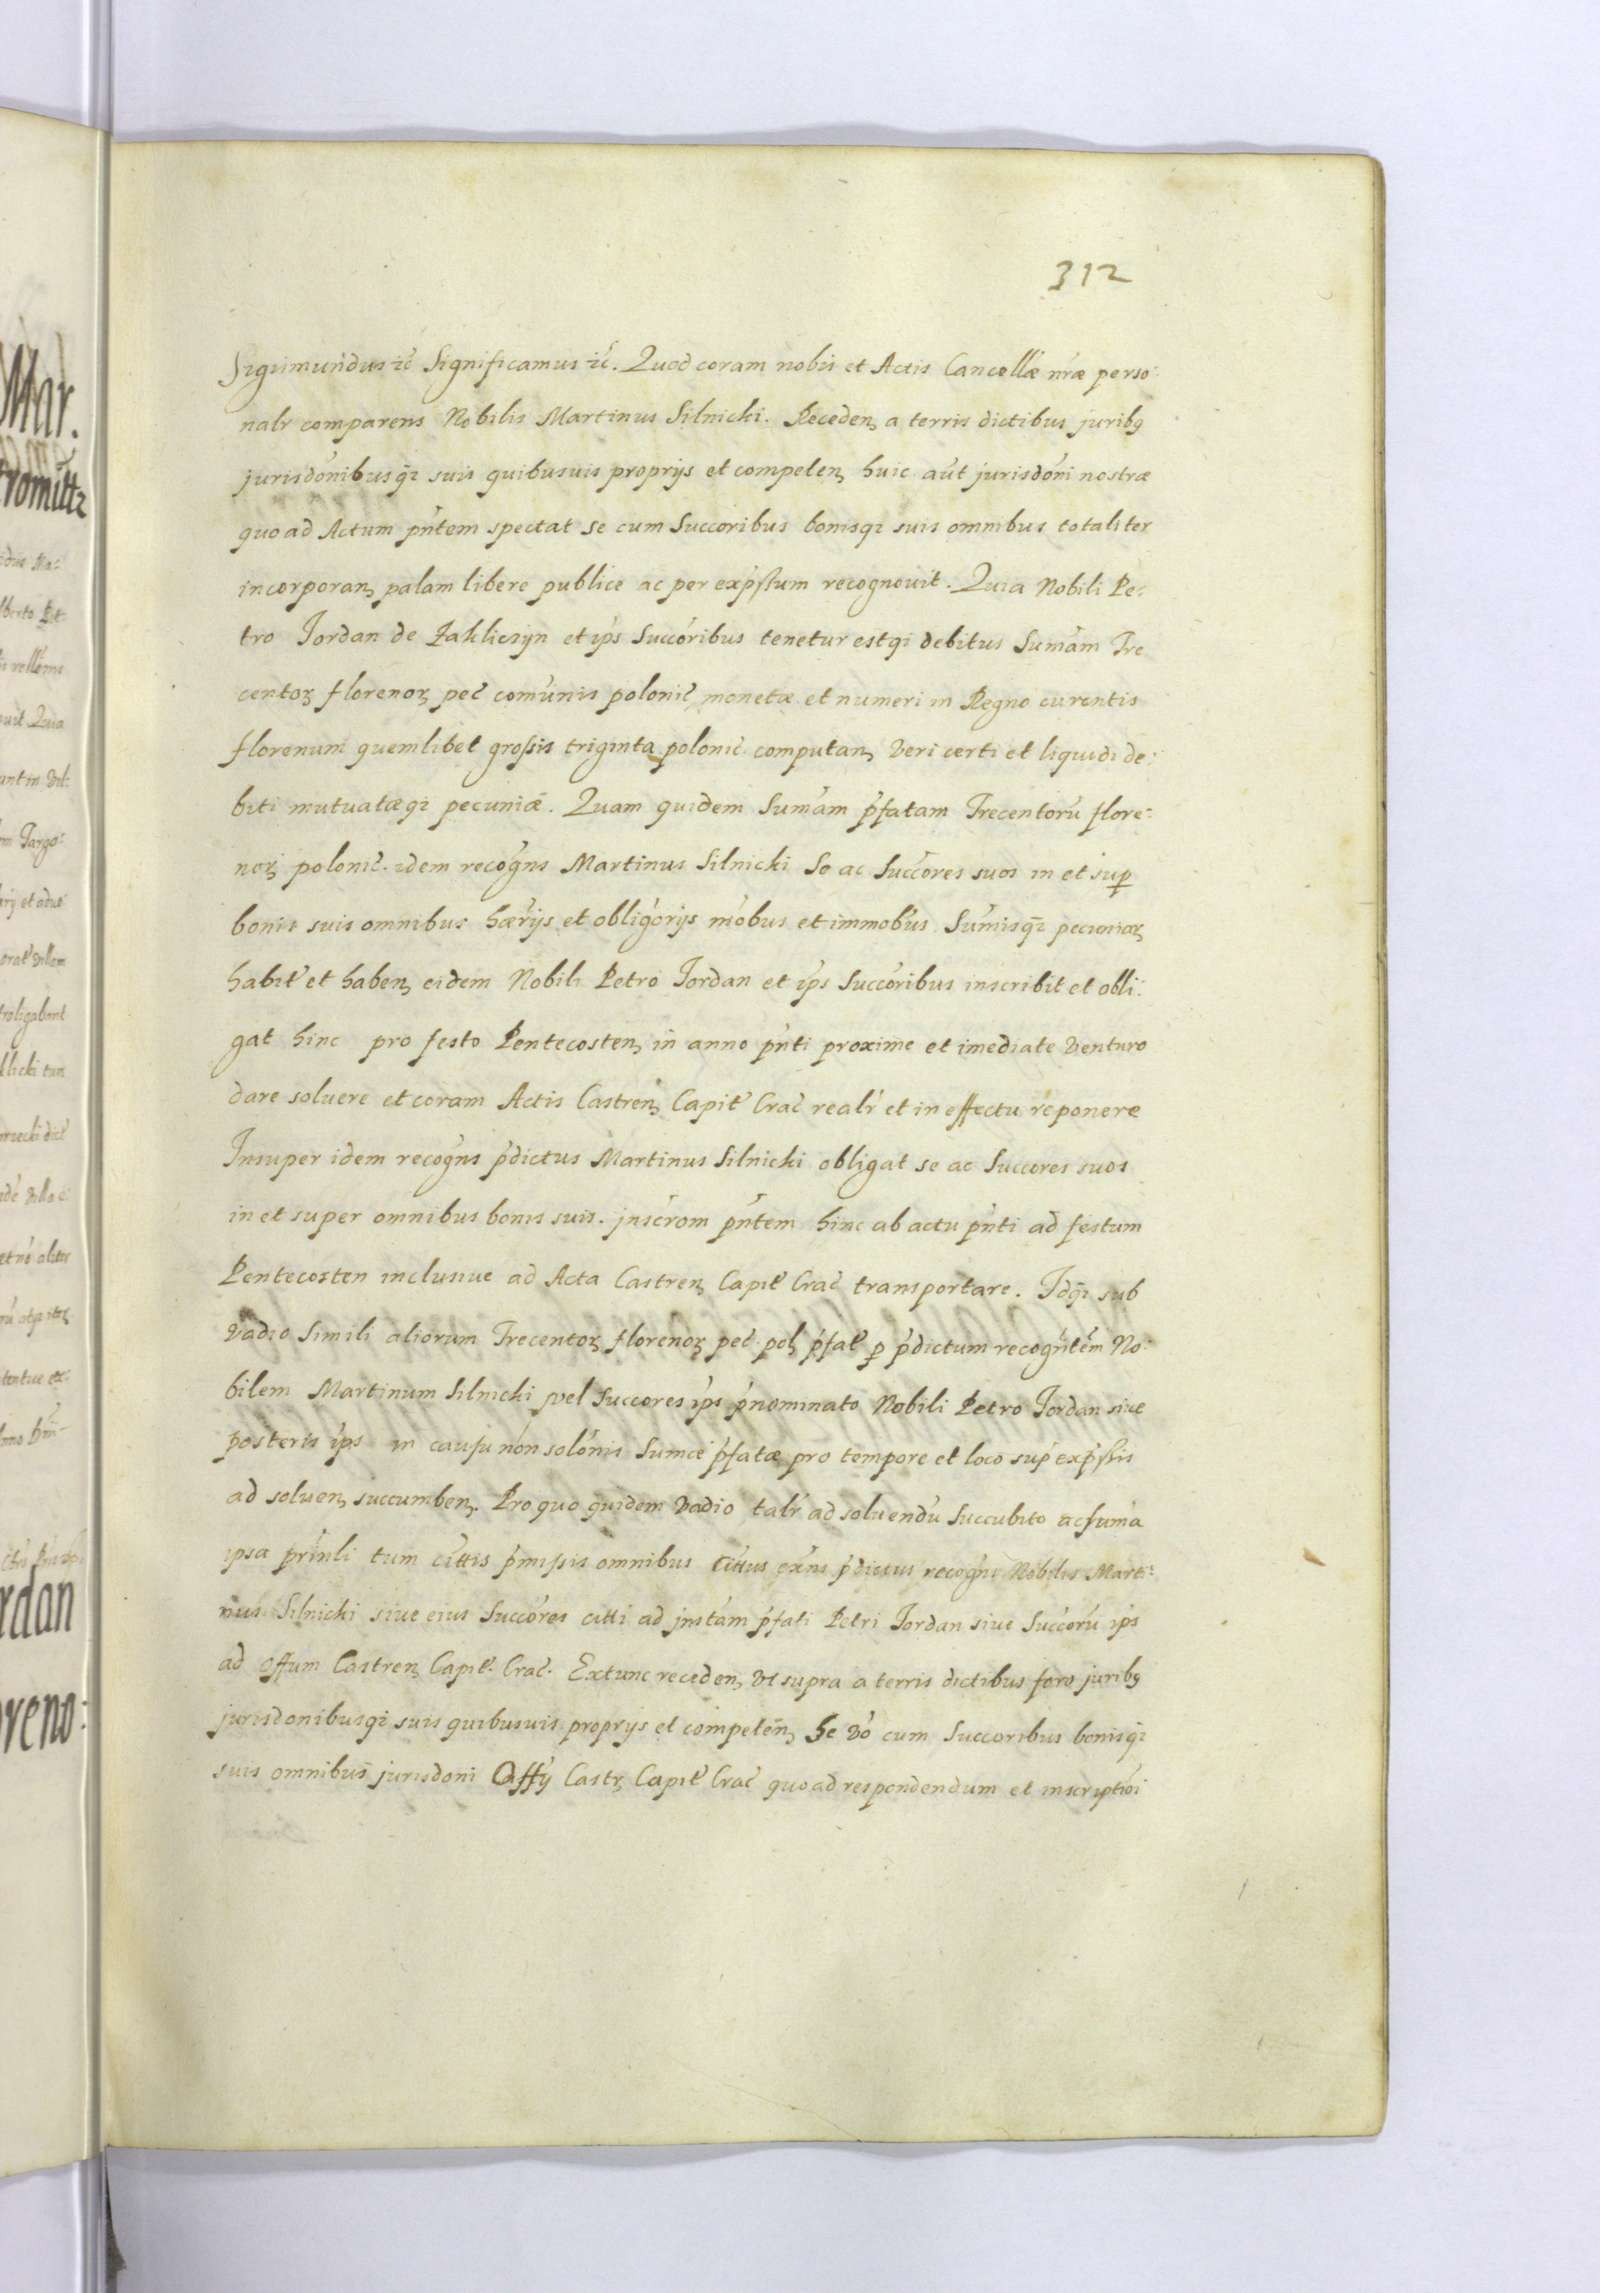 312
Sigismundus etc̃ Significamus etc̃. Quod coram nobis et Actis Cancellæ nr̃æ perso:
nalr̃ comparens Nobilis Martinus Silnicki. Receden, a terris dictibus juribq
jurisdónibusqȝ suis quibusuis proprijs et competen, huic aút jurisdóni nostræ
quo ad Actum pńtem spectat se cum Succoribus bonisqȝ suis omnibus totaliter
incorporan, palam libere publice ac per expŕssum recognouit. Quia Nobili Pe:
tro Jordan de Zakliczyn et ip̃s Succoribus tenetur estqȝ debitus Sumám Tre
centoꝝ florenoꝝ pec̃ comúnis polonic̃ monetæ et numeri in Regno curentis
florenum quemlibet grossis triginta polonic̃ computan, veri certi et liquidi de:
biti mutuatæqȝ pecuniæ̃. Quam quidem Sumám p̃fatam Trecentorũ flore:
noꝝ polonic̃. idem recogńs Martinus Silnicki Se ac Succores suos in et suꝑ
bonis suis omnibus hær̃ijs et obligórijs móbus et immobús Súmisqȝ pecuniaꝝ
habit̃ et haben, eidem Nobili Petro Jordan et ip̃s Succoribus inscribit et obli:
gat hinc pro festo Pentecosten, in anno pńti proxime et imediate venturo
dare soluere et coram Actis Castren, Capit̃ Crac̃ realŕ et in effectu reponere
Insuper idem recogńs p̃dictus Martinus Silnicki obligat se ac Succores suos
in et super omnibus bonis suis. jnscŕom pńtem hinc ab actu pńti ad festum
Pentecosten inclusiue ad Acta Castren, Capit̃ Crac̃ transportare. Idqȝ sub
vadio Simili aliorum Trecentoꝝ florenoꝝ pec̃ pol, p̃fat̃ ꝑ p̃dictum recogńtem No:
bilem Martinum Silnicki vel Succores ip̃s p̃nominato Nobili Petro Jordan siue
posteris ip̃s in causu nón solónis Sumæ p̃fatæ pro tempore et loco sup̃ expŕssis
ad soluen, succumben,. Pro quo quidem vadio talŕ ad soluendũ Succubito ac suma
ipsa prinĺi tum cittis p̃missis omnibus cittus exńs p̃dictus recogńs Nobilis Marti:
nus Silnicki siue eius Succores citti ad jnstám p̃fati Petri Jordan siue Succorũ ip̃s
ad offum Castren, Capit̃. Crac̃. Extunc receden, vt supra a terris dictibus foro juribq
jurisdonibusqȝ suis quibusuis proprijs et competen, Se vó cum Succoribus bonisqȝ
suis omnibus jurisdoni Offý Castr, Capit̃ Crac̃ quo ad respondendum et inscriptiói